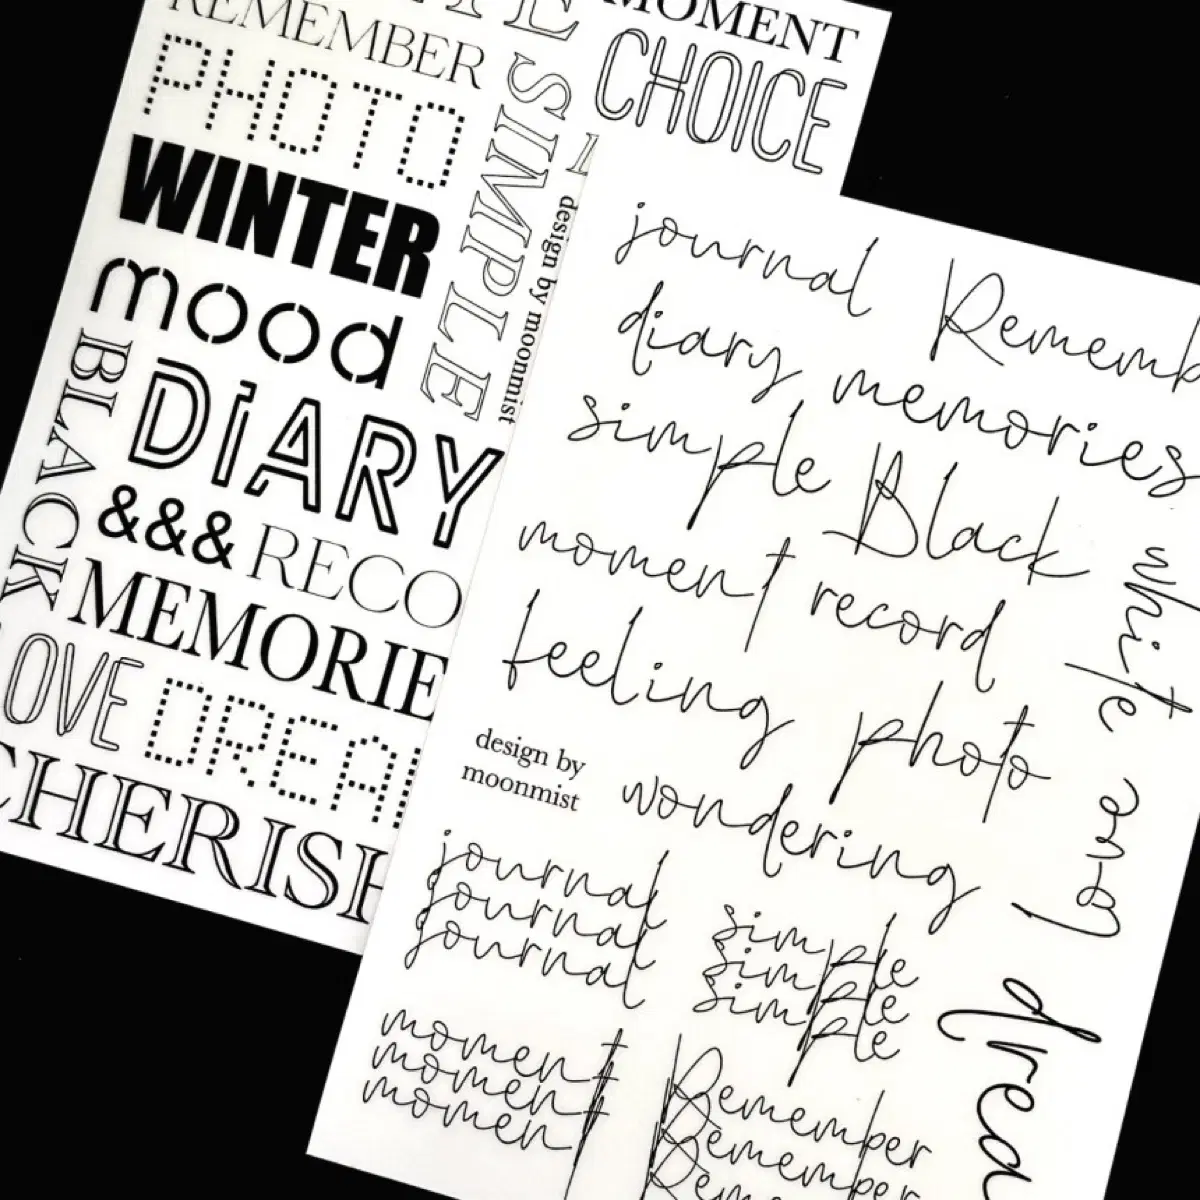 MOMENT
REMEMBER
CHOICE
PHOTO
SIMPLE
WINTER
design by moonmist
mood
BLACK
DiARY
&&& RECO
MEMORIE
LOVE DREA
CHERISH
journal Rememb
diary memories
simple Black
moment record
white
feeling photo
design by
moonmist
wondering
love
journal
journal
journal
simple
simple
simple
drea
moment
moment
moment
Remember
Remember